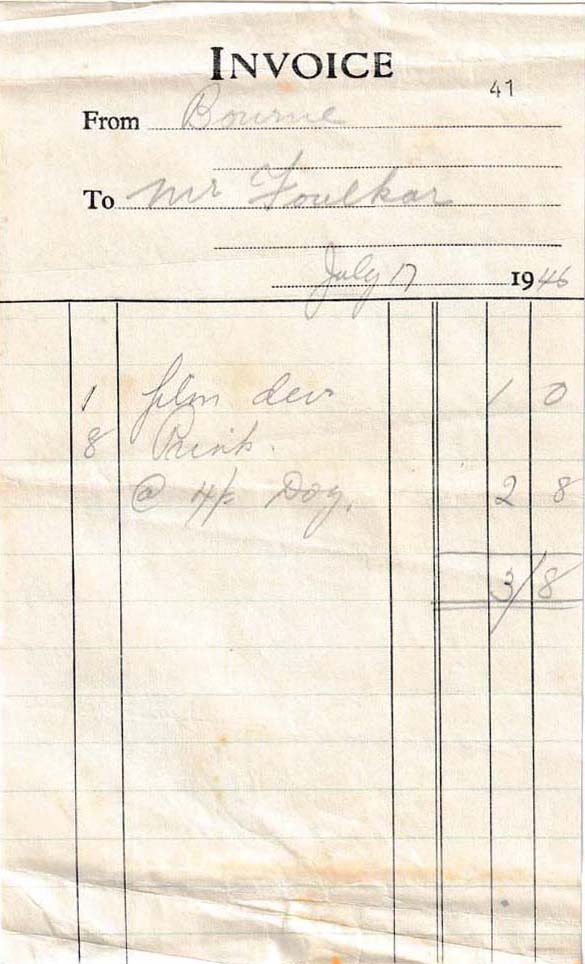 INVOICE
41
From Bourne
To Mr Foulkar
July 17 1946
1 film dev 1 0
8 Prints.
@ 4/- Doz. 2 8
3/8